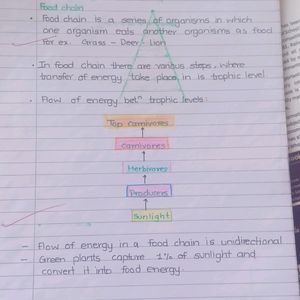 Food chain
• Food chain is a series of organisms in which
one organism eats another organisms as food
For ex. Grass - Deer - Lion
• In food chain there are various steps, where
transfer of energy take place in is trophic level
• Flow of energy betⁿ trophic levels:
Top carnivores
Carnivores
Herbivores
Producers
Sunlight
- Flow of energy in a food chain is unidirectional
- Green plants capture 1% of sunlight and
convert it into food energy.